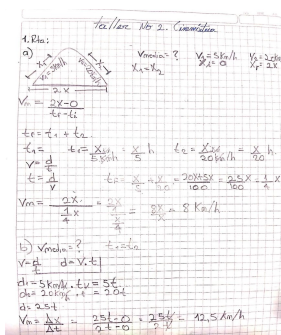 taller No 2. Cinemática
1. Rta:
a)
Vmedia = ? V₁ = 5 Km/h V₂ = 20 Km/h
X₁ = X₂ Xᵢ = 0 X_f = 2X
X₁ V₁ = 5 Km/h
X₂
2X
Vm = 2X - 0 / t_f - t_i
t_f = t₁ + t₂
t₁ = t₁ = X / 5 Km/h = X/5 h t₂ = X / 20 Km/h = X/20 h
V = d/t
t = d/V t_f = X/5 + X/20 = 20X+5X / 100 = 25X / 100 = 1/4 X
Vm = 2X / 1/4 X = 2X / X/4 = 8X / X = 8 Km/h
b) Vmedia = ? t₁ = t₂
V = d/t d = V . t
d₁ = 5 Km/h . t = 5t
d₂ = 20 Km/h . t = 20t
d = 25t
Vm = ΔX / Δt = 25t - 0 / 2t - 0 = 25t / 2t = 12,5 Km/h